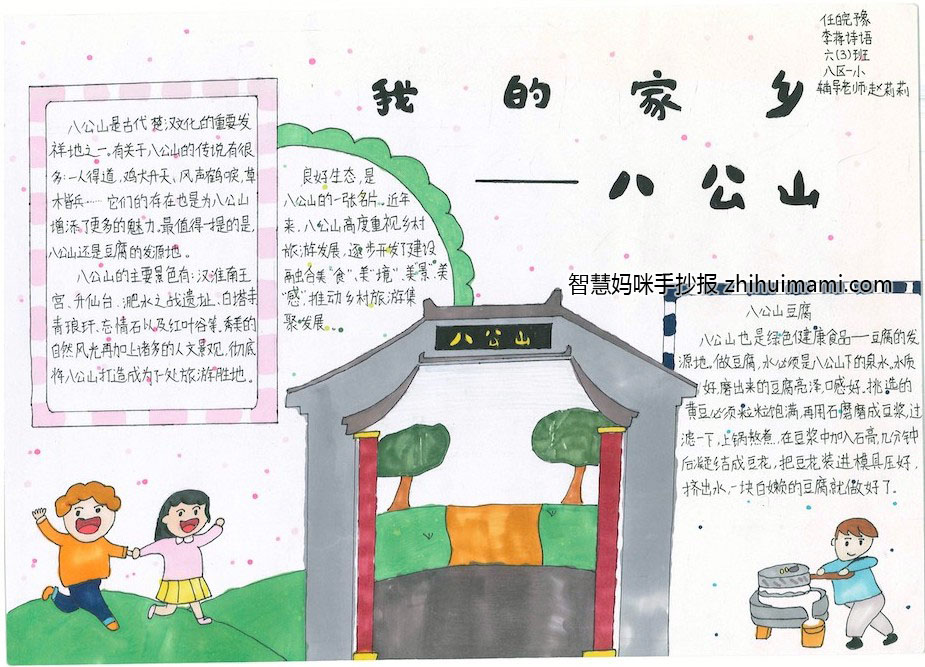 任皖予豫
李蒋诗语
六(3)班
八区一小
辅导老师:赵莉莉
我的家乡
——八公山
智慧妈咪手抄报-zhihuimami.com
八公山是古代楚汉文化的重要发
祥地之一。有关于八公山的传说有很
多:一人得道,鸡犬升天、风声鹤唳,草
木皆兵……它们的存在也是为八公山
增添了更多的魅力。最值得一提的是,
八公山还是豆腐的发源地。
八公山的主要景色有:汉淮南王
宫、升仙台、淝水之战遗址、白塔寺
青琅玕、忘情石以及红叶谷等。秀美的
自然风光再加上诸多的人文景观,彻底
将八公山打造成为了一处旅游胜地。
良好生态,是
八公山的一张名片。近年
来,八公山高度重视乡村
旅游发展,逐步开发了建设
融合美“食”、美“境”、美“景”、美
“感”,推动乡村旅游集
聚发展。
八公山
八公山豆腐
八公山也是绿色健康食品——豆腐的发
源地。做豆腐,水必须是八公山下的泉水。水质
好,磨出来的豆腐亮泽,口感好。挑选的
黄豆必须粒粒饱满,再用石磨磨成豆浆,过
滤一下,上锅熬煮。在豆浆中加入石膏,几分钟
后凝结成豆花,把豆花装进模具压好,
挤出水,一块白嫩的豆腐就做好了.